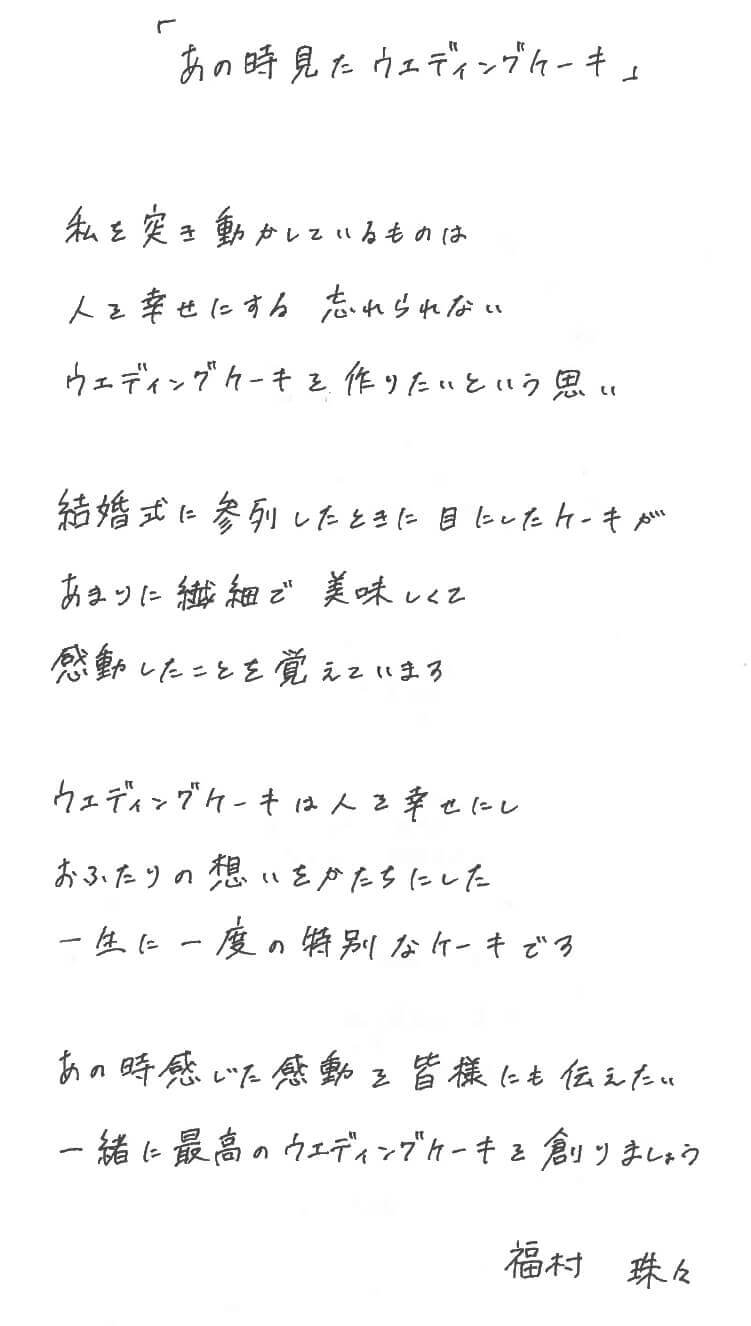 「あの時見たウエディングケーキ」
私を突き動かしているものは
人を幸せにする 忘れられない
ウエディングケーキを作りたいという思い
結婚式に参列したときに目にしたケーキが
あまりに繊細で 美味しくて
感動したことを覚えています
ウエディングケーキは人を幸せにし
おふたりの想いをかたちにした
一生に一度の特別なケーキです
あの時感じた感動を皆様にも伝えたい
一緒に最高のウエディングケーキを創りましょう
福村 珠々